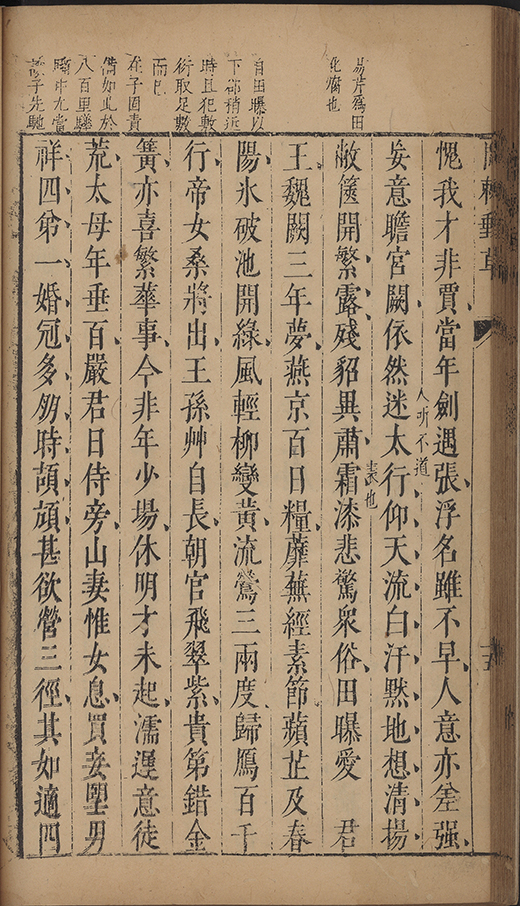 問棘郵草
易芹爲田
化腐也
自田曝以
下都稍近
時且犯數
行取足數
而已
在子固貴
備如此於
八百里
中尤當
子先馳
愧我才非賈當年劍遇張浮名雖不早人意亦差强
人所不道
妄意瞻宮闕依然迷太行仰天流白汗黙地想清揚
裘也
敝篋開繁露殘貂異肅霜漆悲驚衆俗田曝愛 君
王魏闕三年夢燕京百日糧蘼蕪經素節蘋芷及春
陽氷破池開綠風輕柳變黃流鶯三兩度歸鴈百千
行帝女桑將出王孫艸自長朝官飛翠紫貴第錯金
簧亦喜繁華事今非年少場休明才未起濡遲意徒
荒太母年垂百嚴君日侍旁山妻惟女息買妾朢男
祥四弟一婚冠多方時頡頏甚欲營三徑其如適四